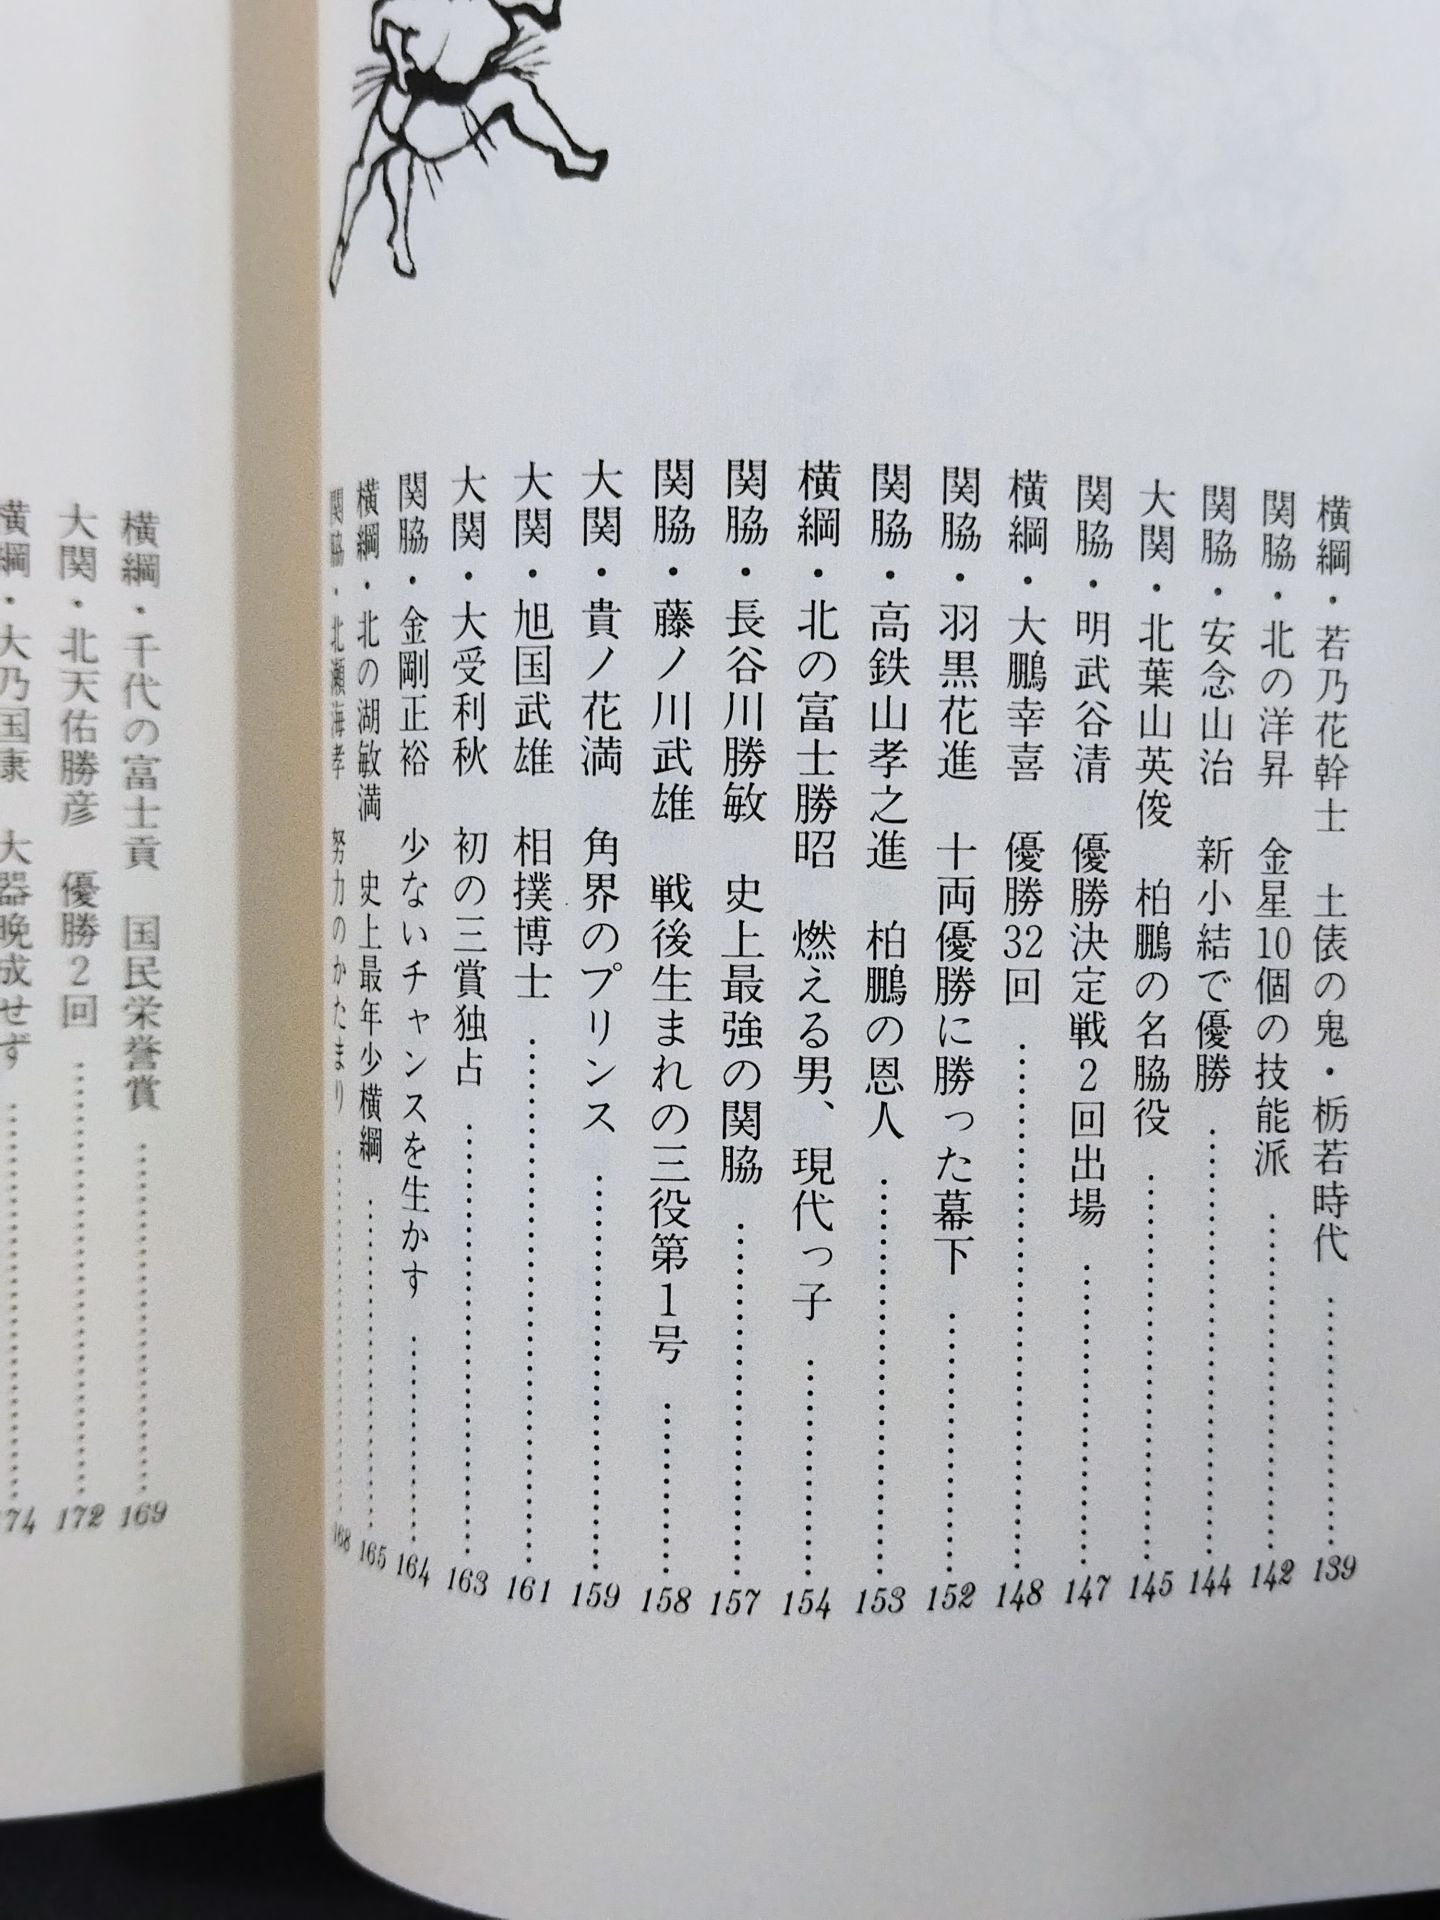 横綱・若乃花幹士　土俵の鬼・栃若時代……139
関脇・北の洋昇　金星10個の技能派……142
関脇・安念山治　新小結で優勝……144
大関・北葉山英俊　柏鵬の名脇役……145
関脇・明武谷清　優勝決定戦2回出場……147
横綱・大鵬幸喜　優勝32回……148
関脇・羽黒花進　十両優勝に勝った幕下……152
関脇・高鉄山孝之進　柏鵬の恩人……153
横綱・北の富士勝昭　燃える男、現代っ子……154
関脇・長谷川勝敏　史上最強の関脇……157
関脇・藤ノ川武雄　戦後生まれの三役第1号……158
大関・貴ノ花満　角界のプリンス……159
大関・旭国武雄　相撲博士……161
大関・大受利秋　初の三賞独占……163
関脇・金剛正裕　少ないチャンスを生かす……164
横綱・北の湖敏満　史上最年少横綱……165
関脇・北瀬海孝　努力のかたまり……168
横綱・千代の富士貢　国民栄誉賞……169
大関・北天佑勝彦　優勝2回……172
横綱・大乃国康　大器晩成せず……174